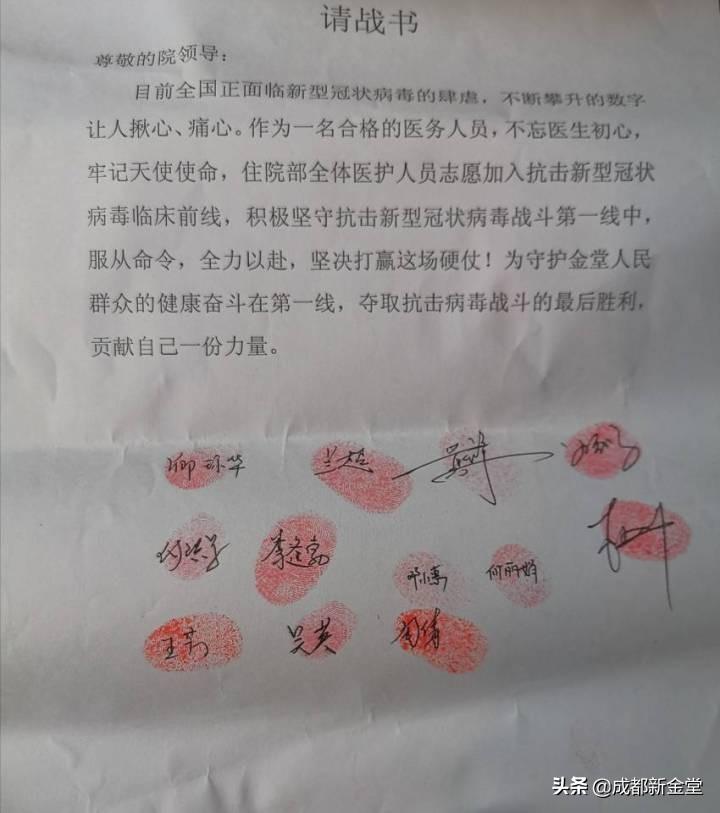 请战书
尊敬的院领导：
目前全国正面临新型冠状病毒的肆虐，不断攀升的数字
让人揪心、痛心。作为一名合格的医务人员，不忘医生初心，
牢记天使使命，住院部全体医护人员志愿加入抗击新型冠状
病毒临床前线，积极坚守抗击新型冠状病毒战斗第一线中，
服从命令，全力以赴，坚决打赢这场硬仗！为守护金堂人民
群众的健康奋斗在第一线，夺取抗击病毒战斗的最后胜利，
贡献自己一份力量。
兰超
邓小惠 何丽婷
王莉 吴英
头条 @成都新金堂